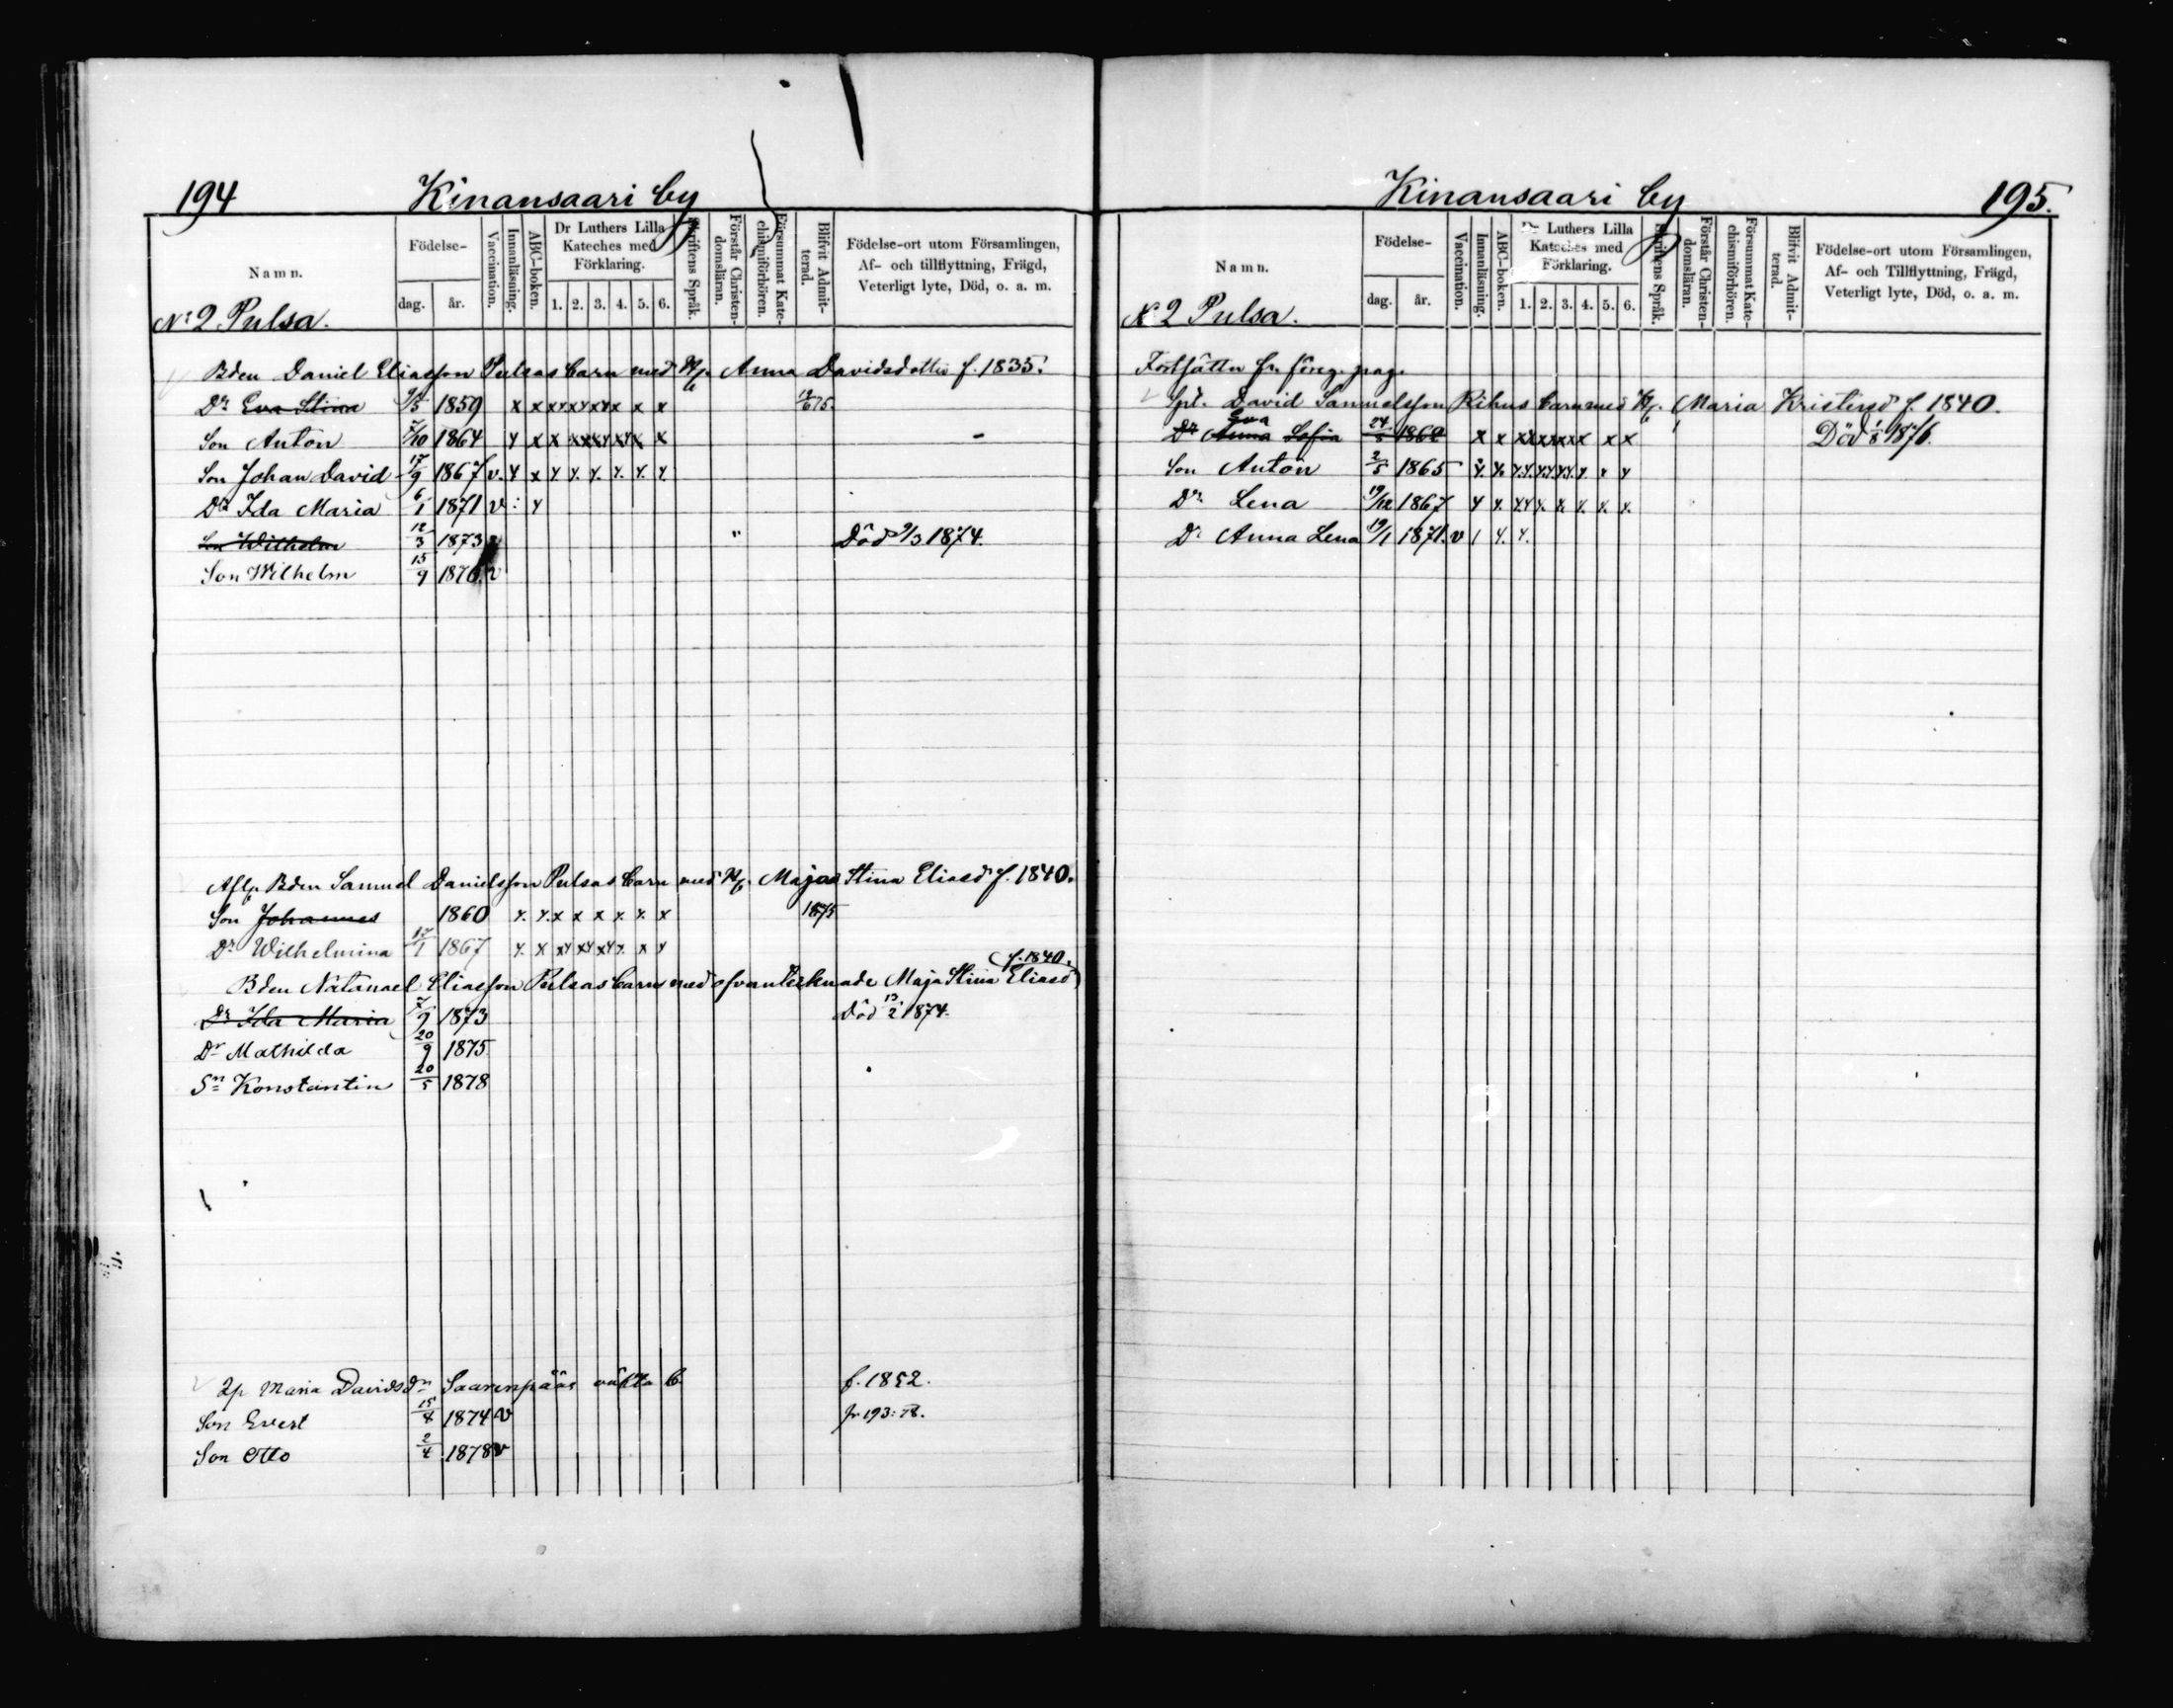 194 Kinansaari by
Namn. Födelse- dag. år. Vaccination. Innanläsning. ABC-boken. Dr Luthers Lilla Kateches med Förklaring. 1. 2. 3. 4. 5. 6. Skriftens Språk. Förstår Christen-domsläran. Försummat Kate-chismiförhören. Blifvit Admit-terad. Födelse-ort utom Församlingen, Af- och tillflyttning, Frägd, Veterligt lyte, Död, o. a. m.
No 2 Pulsa.
Bden Daniel Eliasson Pulsas barn med H. Anna Davidsdotter f. 1835.
Dr Eva Stina 1859 x x x x x x x x x
Son Anton 7/10 1864 y x x x x x y x y x x
Son Johan David 17/9 1867 v. y x y y. y. y. y. y.
Dr Ida Maria 6/1 1871 v : y
Son Wilhelm 12/3 1873 " Död 9/3 1874.
Son Wilhelm 15/9 1876. v
Afl. Bden Samuel Danielsson Pulsas barn med H. Majas Stina Eliasd f. 1840.
Son Johannes 1860 y. y. x x x y. y. x 1875
Dr Wilhelmina 17/1 1867 y. x xy xy xy y. x y
f. 1840.
Bden Natanael Eliasson Pulsas barn med ofvantecknade Maja Stina Eliasd
Dr Ida Maria 7/9 1873 Död 13/2 1874.
Dr Mathilda 20/9 1875
Sn Konstantin 20/5 1878
Maria Davidsdr Saarenpääs oäkta b f. 1852.
Son Evert 15/8 1874 v fr 193: 78.
Son Otto 2/4 1878 v
Kinansaari by 195.
Namn. Födelse- dag. år. Vaccination. Innanläsning. ABC-boken. Dr Luthers Lilla Kateches med Förklaring. 1. 2. 3. 4. 5. 6. Skriftens Språk. Förstår Christen-domsläran. Försummat Kate-chismiförhören. Blifvit Admit-terad. Födelse-ort utom Församlingen, Af- och Tillflyttning, Frägd, Veterligt lyte, Död, o. a. m.
No 2 Pulsa.
Fortsättn fr. föreg. pag.
Spl. David Samuelsson Rikus barn med H. Maria Kristersd f. 1840.
Eva
Dr Anna Sofia 24/5 x x x x x x x x x Död 1876.
Son Anton 2/5 1865 y. y. y. y. y. y. y. y. x y
Dr Lena 19/12 1867 y y. y. y y. x. y. y. y.
Dr Anna Lena 19/1 1871. v 1 y. y.